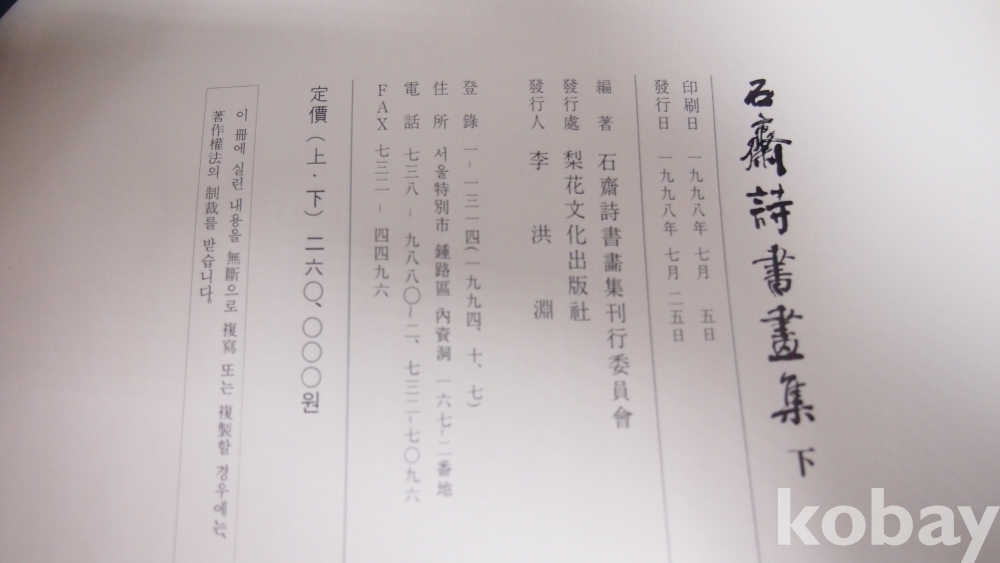 石齋詩書畫集 下
印刷日 一九九八年 七月 五日
發行日 一九九八年 七月 二五日
編著 石齋詩書畫集刊行委員會
發行處 梨花文化出版社
發行人 李洪淵
登錄 一－一三一四(一九九四、十、七)
住所 서울特別市 鍾路區 內資洞 一六七－二番地
電話 七三八－九八八〇~二、七三二－七〇九六
FAX 七三二－四四九六
定價(上·下) 二六〇、〇〇〇원
이 冊에 실린 내용을 無斷으로 複寫 또는 複製할 경우에는,
著作權法의 制裁를 받습니다.
kobay